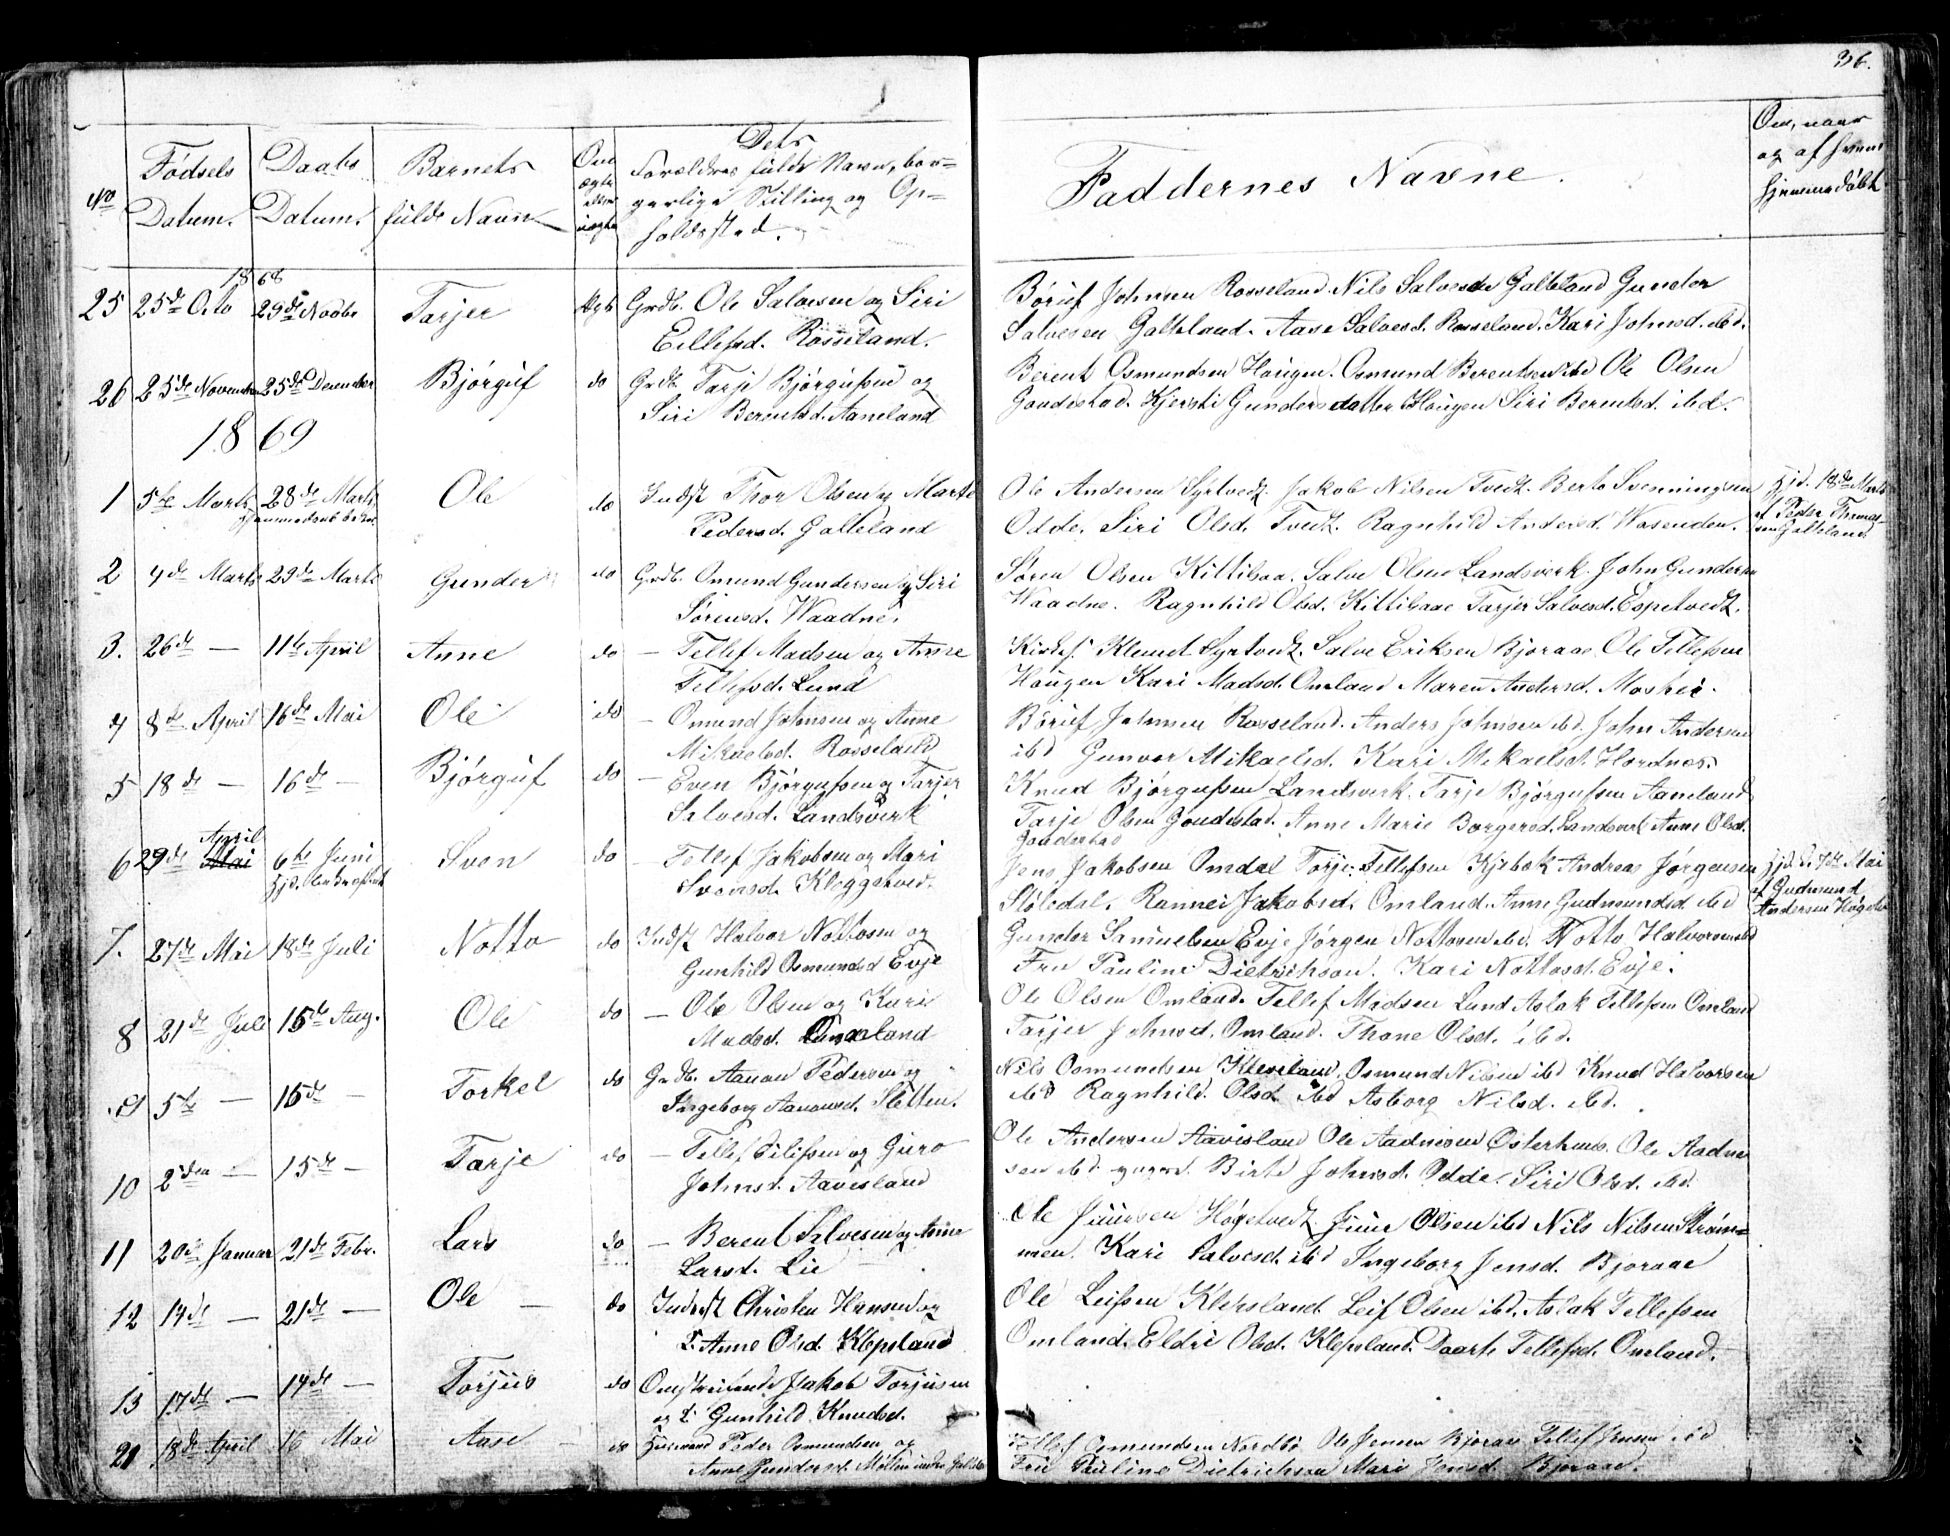 36.
No
Fødsels
Datum.
Daabs
Datum.
Barnets
fulde Navn
Om
ægte
eller
uægte
Dets
Forældres fulde Navn, bor-
gerlige Stilling og Op-
holdssted.
Faddernes Navne.
Om, naar
og af hvem
hjemmedøbt
1868
25 25de Octo 29de Novbr Tarjer Ægte Grdb. Ole Salvesen og Siri
Eellefsd. Rosseland.
Børuf Johnsen Rosseland. Nils Salvesen Galteland Gunder
Salvesen Galteland. Aase Salvesd. Rosseland. Kari Johnsd. ibd.
26 25de November 25de December Bjørguf do Grdb. Tarje Bjørgufsen og
Siri Berentsd. Aaneland
Berent Osmundsen Hougen. Osmund Berentsen ibd Ole Olsen
Goudestad. Kjersti Gundersdatter Hougen Siri Berentsd. ibd.
1869
1 5te Marts 28de Marts Ole do Indst Thor Olsen og Marte
Pedersd. Galteland
Ole Andersen Syrtvedt. Jakob Nilsen Tvedt. Berte Svenningsen
Odde. Siri Olsd. Tvedt. Ragnhild Andersd. Wasenden.
Hjd. 18de Marts
af Peder Thomas-
sen Galteland
2 4de Marts 29de Marts Gunder do Grdb. Omund Gundersen og Siri
Sørensd. Waadne.
Søren Olsen Kittilsaa. Salve Olsen Landsverk. John Gundersen
Waadne. Ragnhild Olsd. Kittilsaae Tarjer Salvesd. Espetvedt.
3. 26de — 11te April Anne do — Tellef Madsen og Anne
Tellefsd. Lund
Klemet Syrtvedt. Salve Eriksen Bjoraae Ole Tellefsen
Hougen Kari Madsd. Omland Maren Andersd. Moshei.
4 8de April 16de Mai Ole do — Omund Johnsen og Anne
Mikaelsd. Rosseland
Børuf Johnsen Rosseland. Anders Johnsen ibd. John Andersen
ibd Gunvor Mikaelsd. Kari Mikaelsd. Hordnes.
5 18de — 16de — Bjørguf do — Even Bjørgufsen og Tarjer
Salvesd. Landsverk
Knud Bjørgufsen Landsverk. Tarje Bjørgufsen Aaneland
Tarje Olsen Goudestad. Anne Marie Borgersd. Landsverk Anne Olsd.
Goudestad
6 29de April Mai 6te Juni Sven do — Tellef Jakobsen og Mari
Svensd. Kleggetved.
Jens Jakobsen Omdal Tarje Tellefsen Kjebæk Andreas Jørgensen
Støledal. Rannei Jakobsd. Omland. Anne Gudmundsd. ibd
Mai
af Gudmund
Andersen
7. 27de Mai 18de Juli Notto do Indst Halvor Nottosen og
Gunhild Osmundsd Evje
Gunder Samuelsen Evje Jørgen Nottosen ibd. Notto Halvorsen ibd
Fru Pauline Dietrichson. Kari Nottosd. Evje.
8 21de Juli 15de Aug. Ole do — Ole Olsen og Kari
Madsd. Omland
Ole Olsen Omland. Tellef Madsen Lund Aslak Tellefsen Omland
Tarjer Johnsd. Omland. Thone Olsd. ibd.
9 5te — 15de — Torkel do Grdb. Aanon Pedersen og
Ingeborg Aanonsd. Sletten.
Nils Osmundsen Kleveland. Osmund Nilsen ibd Knud Halvorsen
ibd Ragnhild Olsd. ibd Asborg Nilsd. ibd.
10 2den — 15de — Tarje do — Tellef og Guro
Johnsd. Aavesland
Ole Andersen Aavesland Ole Aadnesen Østerhuus. Ole Aadne-
sen ibd Birte Johnsd. Odde. Siri Olsd. ibd
11 20de Januar 21de Febr. Lars do — Berent Salvesen og Anne
Larsd. Lie
Ole Juursen Høgetvedt Juur Olsen ibd Nils Nilsen Strøm-
men. Kari Salvesd. ibd Ingeborg Jensd. Bjoraae
12 14de — 21de — Ole — do Inderst Christen Hansen og
Anne Olsd. Klepsland
Ole Leifsen Klepsland. Leif Olsen ibd. Aslak Tellefsen
Omland. Eldri Olsd. Klepsland. Daarte Tellefsd. Omland.
13 17de — 14de — Torjus do Omstreifende Jakob Torjusen
og Gunhild Knudsd.
20 18de April 16 Mai Aase do Huusmand Peder Osmundsen og
Anne Gundersd.
Tellef Osmundsen Nordbø Ole Jensen Bjoraae Tellef Jensen ibd
Fru Pauline Dietrichson Mari Jensd. Bjoraae.